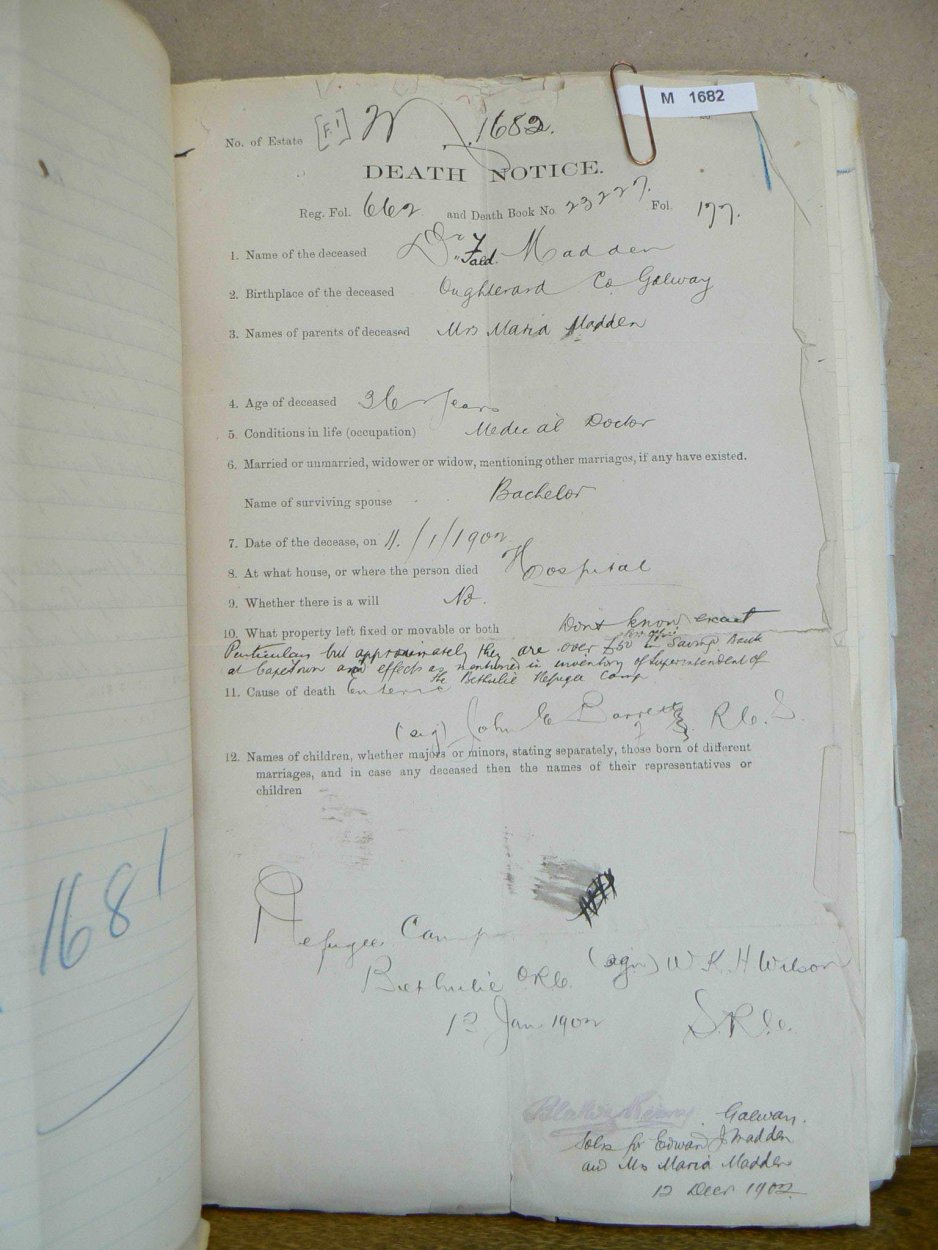 M 1682
No. of Estate [F.1] M 1682.
DEATH NOTICE.
Reg. Fol. 662 and Death Book No. 23227. Fol. 177.
1. Name of the deceased Dr Madden
2. Birthplace of the deceased Oughterard Co Galway
3. Names of parents of deceased Mrs Maria Madden
4. Age of deceased 36 years
5. Conditions in life (occupation) Medical Doctor
6. Married or unmarried, widower or widow, mentioning other marriages, if any have existed.
Name of surviving spouse Bachelor
7. Date of the decease, on 11/1/1902
8. At what house, or where the person died Hospital
9. Whether there is a will No.
10. What property left fixed or movable or both Dont know exact
Particulars but approximately they are over £50 in Post Office Saving Bank
at Capetown and effects as mentioned in inventory of Superintendent of
the Bethulie Refugee Camp
11. Cause of death Enteric
(sig) John C Barrett R.C.S.
12. Names of children, whether majors or minors, stating separately, those born of different
marriages, and in case any deceased then the names of their representatives or
children
1681
Refugee Camp
Bethulie ORC. (sgn) W K H Wilson
12 Jan. 1902 S.R.C.
Galway.
Solrs for Edward J Madden
and Mrs Maria Madden
12 Decr 1902